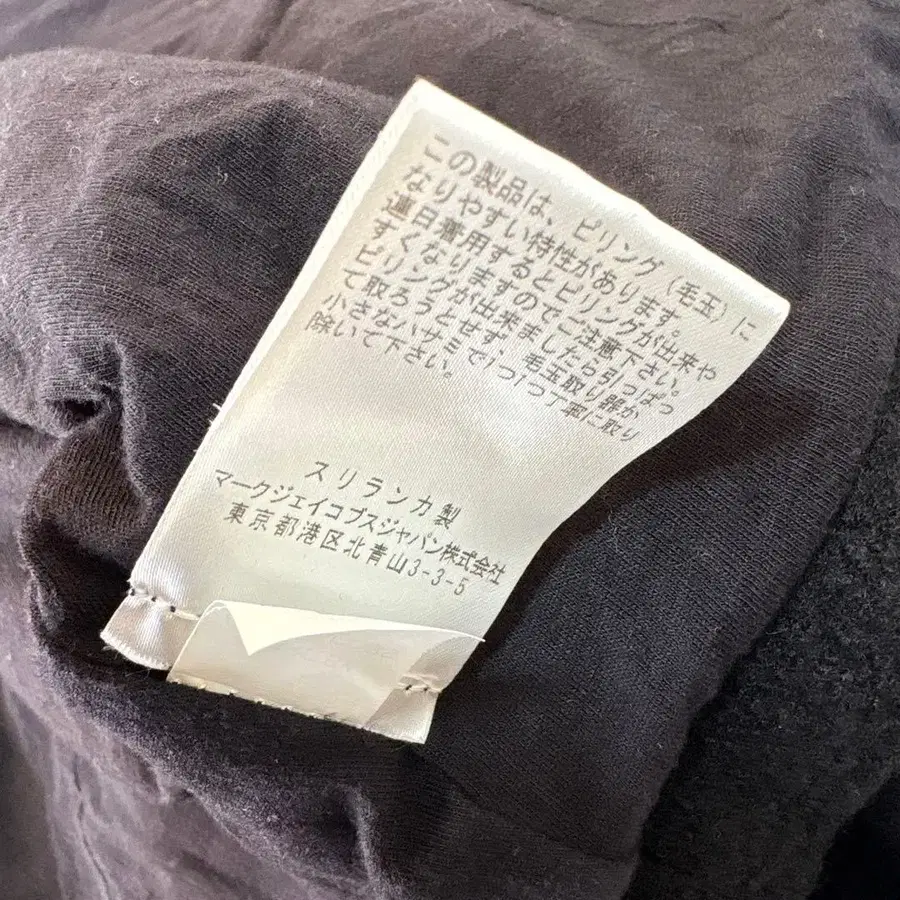 この製品は、ピリング(毛玉)に
なりやすい特性があります。
連日着用するとピリングが出来や
すくなりますのでご注意下さい。
ピリングが出来ましたら引っぱっ
て取ろうとせず、毛玉取り器か
小さなハサミで1つ1つ丁寧に取り
除いて下さい。
スリランカ製
マークジェイコブスジャパン株式会社
東京都港区北青山3-3-5